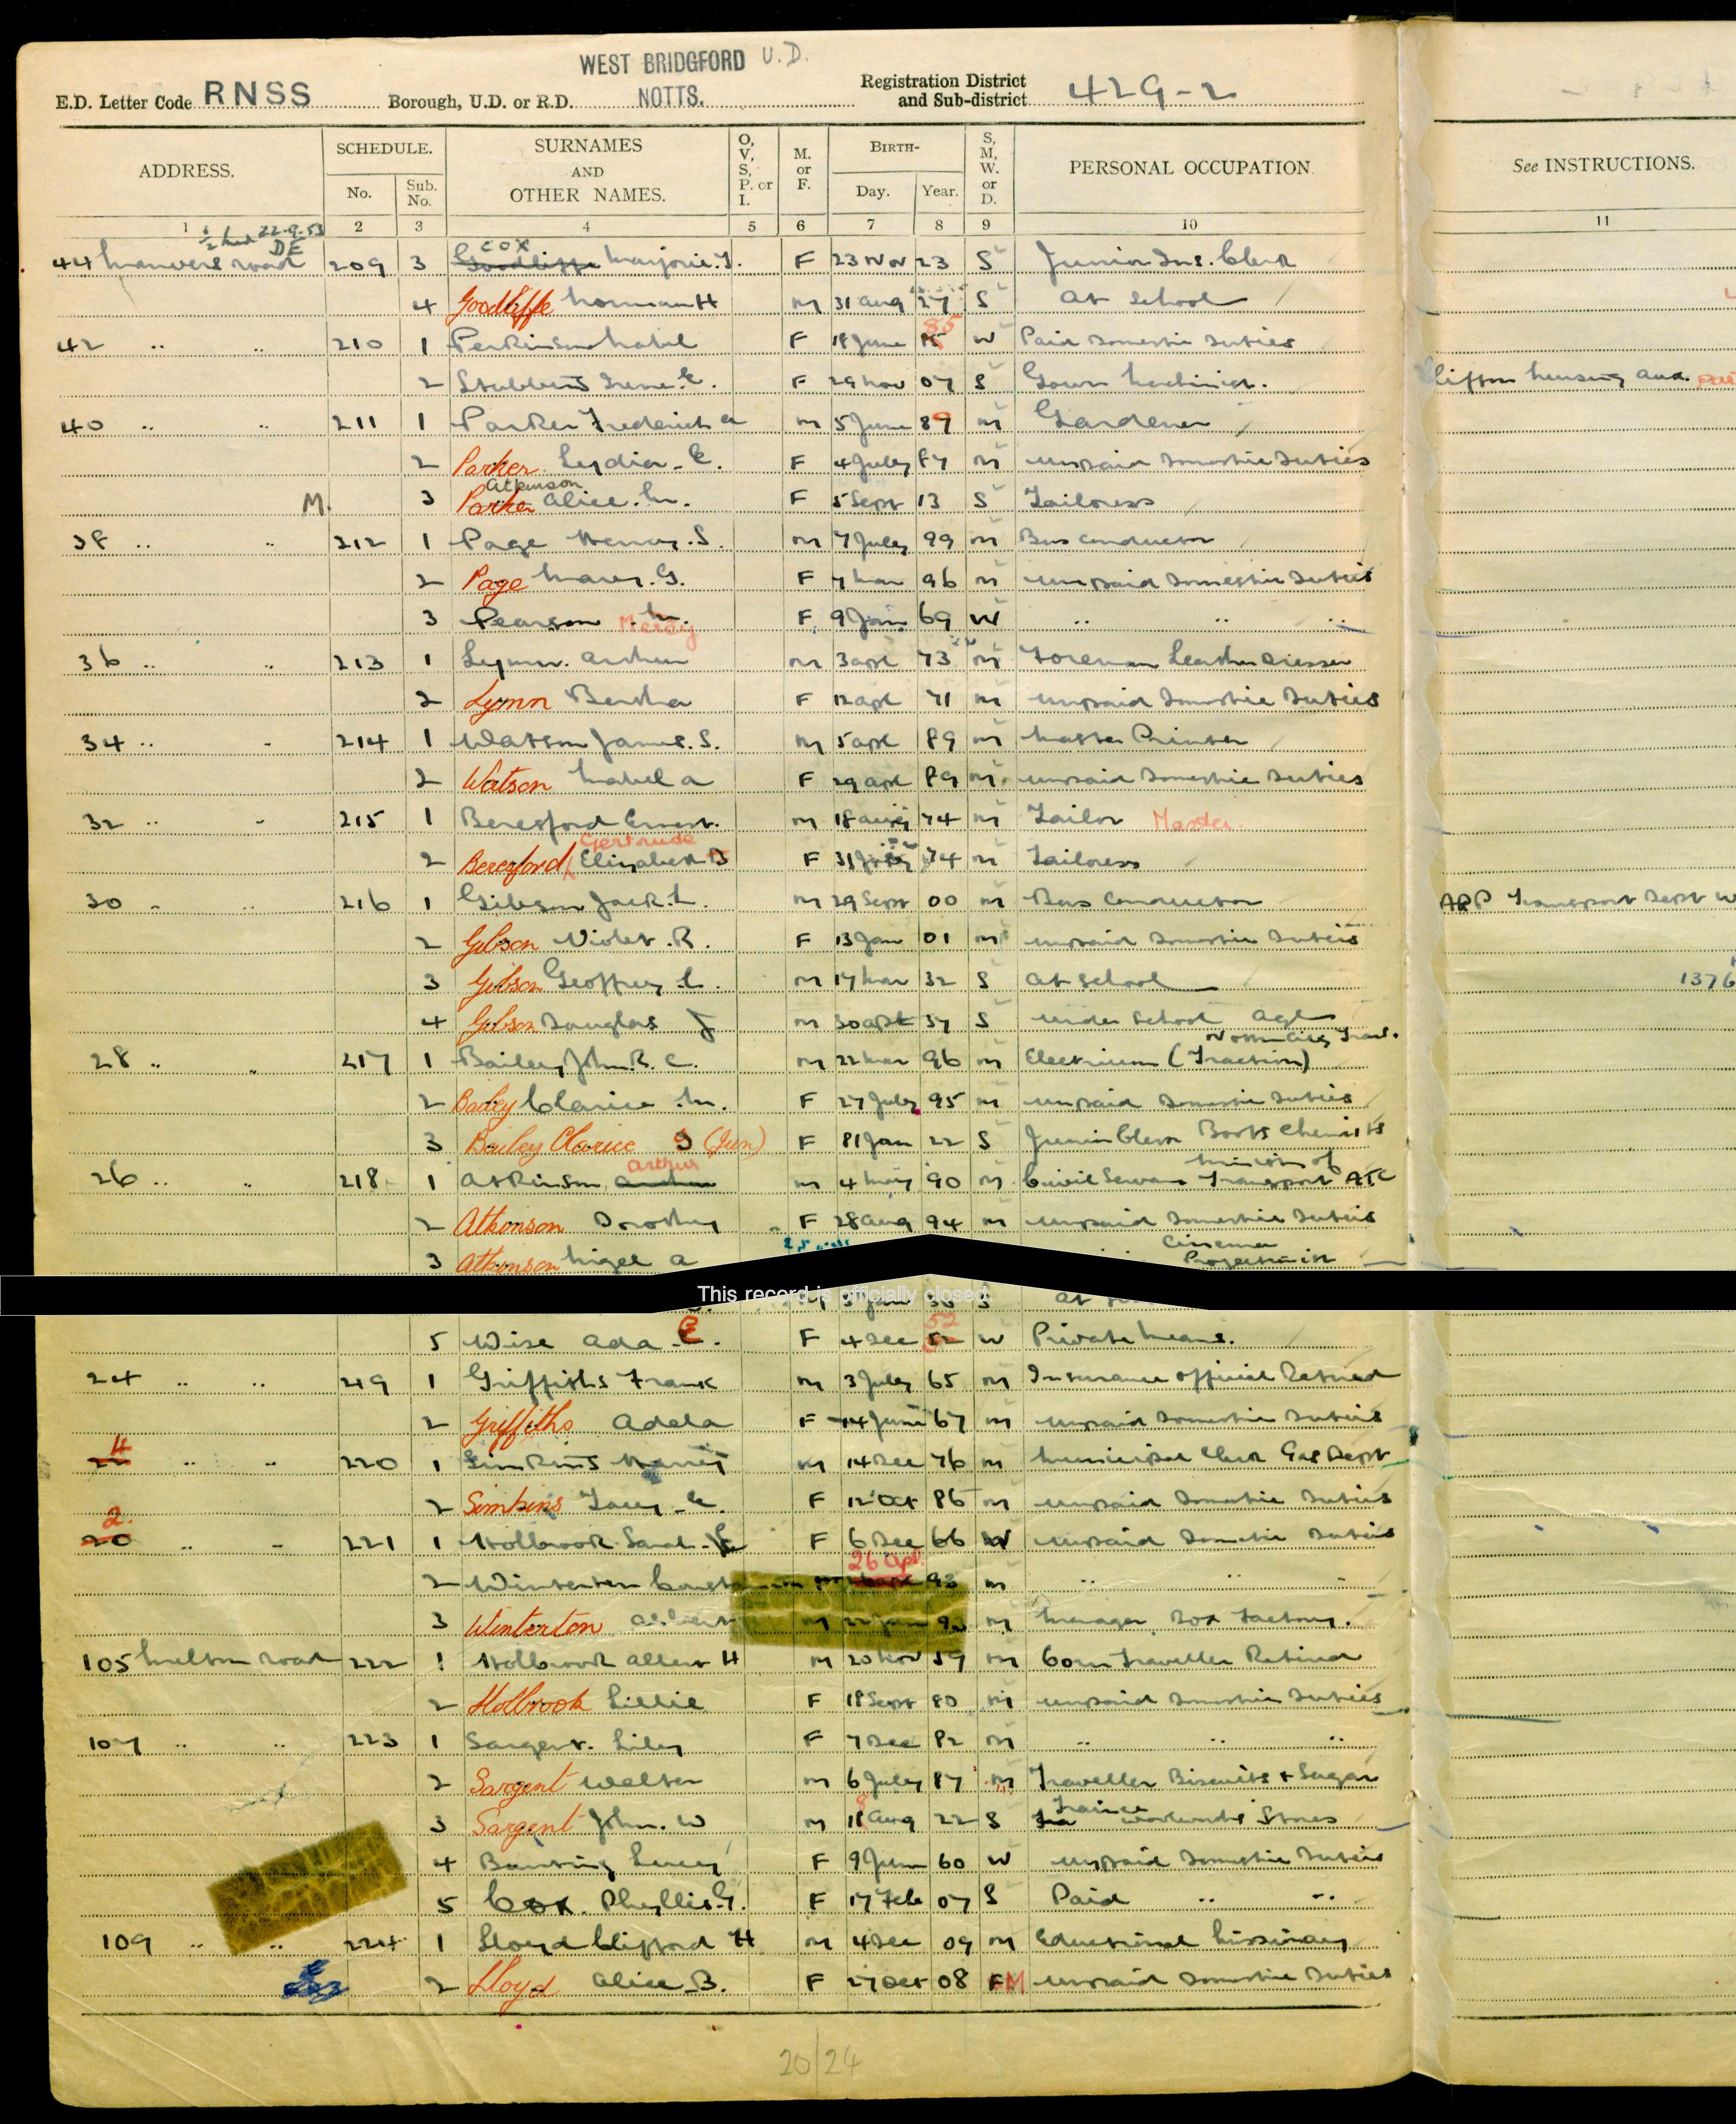 WEST BRIDGFORD U.D.
E.D. Letter Code RNSS Borough, U.D. or R.D. NOTTS. Registration District and Sub-district 429-2
ADDRESS. SCHEDULE. No. Sub. No. SURNAMES AND OTHER NAMES. O, V, S, P. or I. M. or F. BIRTH- Day. Year. S, M, W. or D. PERSONAL OCCUPATION. See INSTRUCTIONS.
1 2 3 4 5 6 7 8 9 10 11
22.9.53
DE COX
44 Manvers road 209 3 Goodliffe Marjorie. F 23 Nov 23 S Junior Ins. Clerk
4 Goodliffe Norman H M 31 Aug 27 S At School
85
42 " " 210 1 Perkinson Mabel F 18 June W Paid Domestic Duties
2 Stubbins Irene. E. F 29 Nov 07 S Gown Machinist.
40 " " 211 1 Parker Frederick A M 5 June 89 M Gardener
2 Parker Lydia. E. F 4 July 87 M Unpaid Domestic Duties
Atkinson
M 3 Parker Alice. M. F 5 Sept 13 S Tailoress
38 " " 212 1 Page Henry. S. M 7 July 99 M Bus Conductor
2 Page Mary. G. F 7 Mar 96 M Unpaid Domestic Duties
3 Pearson M. Mercy F 9 Jan 69 W " " "
36 " " 213 1 Lynn. Arthur M 3 Apl 73 M Foreman Leather Dresser
2 Lynn Bertha F 12 Apl 71 M Unpaid Domestic Duties
34 " " 214 1 Watson James. S. M 5 Apl 89 M Master Printer
2 Watson Mabel A F 29 Apl 89 M Unpaid Domestic Duties
32 " " 215 1 Beresford Ernest. M 18 Aug 74 M Tailor Master
Gertrude
2 Beresford Elizabeth F 31 74 M Tailoress
30 " " 216 1 Gibson Jack. L. M 29 Sept 00 M Bus Conductor ARP Transport Dept W
2 Gibson Violet. R. F 13 Jan 01 M Unpaid Domestic Duties
3 Gibson Geoffrey L. M 17 Mar 32 S At School 1376
4 Gibson Douglas J M 30 Apl 37 S Under School Age
28 " " 217 1 Bailey John. R. C. M 22 Mar 96 M Electrician (Traction)
2 Bailey Clarice M. F 27 July 95 M Unpaid Domestic Duties
3 Bailey Clarice (Jun) F 81 Jan 22 S Junior Clerk Boots Chemists
Arthur Ministry of
26 " " 218 1 Atkinson Arthur M 4 May 90 M Civil Servant Transport
2 Atkinson Dorothy F 28 Aug 94 M Unpaid Domestic Duties
Cinema
3 Atkinson Nigel A Projectionist
This record is officially closed.
52
5 Wise Ada E. F 4 Dec W Private Means.
24 " " 219 1 Griffiths Frank M 3 July 65 M Insurance Official Retired
2 Griffiths Adela F 14 June 67 M Unpaid Domestic Duties
4
22 " " 220 1 Simkins Harry M 14 Dec 76 M Municipal Clerk Gas Dept
2 Simkins E. F 12 Oct 86 M Unpaid Domestic Duties
2.
20 " " 221 1 Holbrook Sarah. F 6 Dec 66 W Unpaid Domestic Duties
26 Apl.
2 Winterton 93 M " " "
3 Winterton Albert M 22 M Manager Box Factory.
105 Melton road 222 1 Holbrook Albert H M 20 Nov 59 M Com Traveller Retired
2 Holbrook Lillie F 18 Sept 80 M Unpaid Domestic Duties
107 " " 223 1 Sargent. Lily F 7 Dec 82 M " " "
2 Sargent Walter M 6 July 87 M Traveller Biscuits + Sugar
3 Sargent John. W M Aug 22 S Trainee Woolworths Stores
4 Bunting Lucy F 9 June 60 W Unpaid Domestic Duties
5 Cox. Phyllis. F 17 Feb 07 S Paid " "
109 " " 224 1 Lloyd Clifford H M 4 Dec 09 M Educational Missionary
2 Lloyd Alice. B. F 27 Oct 08 M Unpaid Domestic Duties
20/24